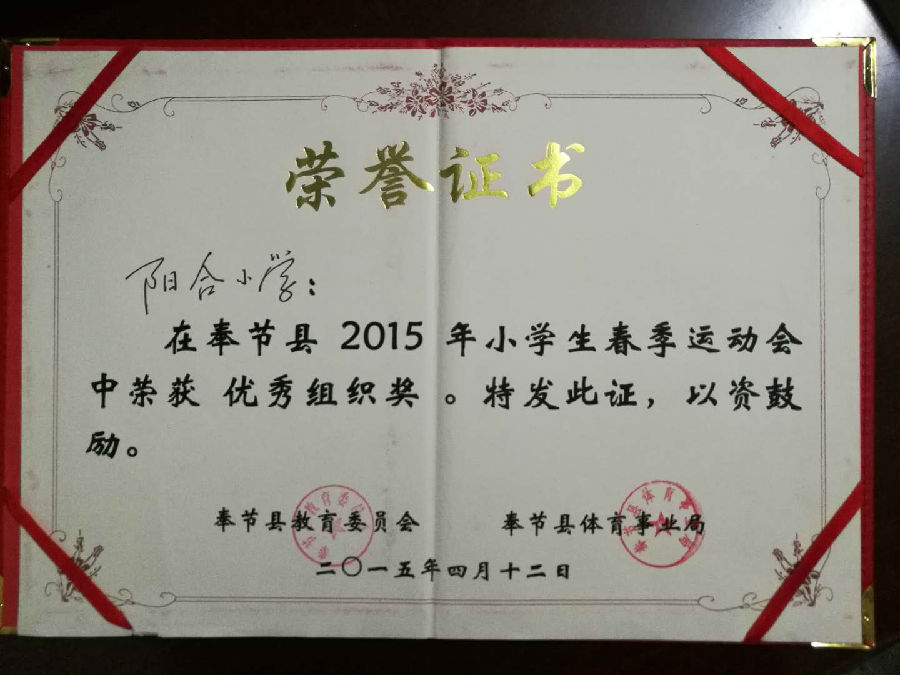 荣誉证书
阳合小学：
在奉节县 2015 年小学生春季运动会
中荣获 优秀组织奖 。特发此证，以资鼓
励。
奉节县教育委员会 奉节县体育事业局
二〇一五年四月十二日